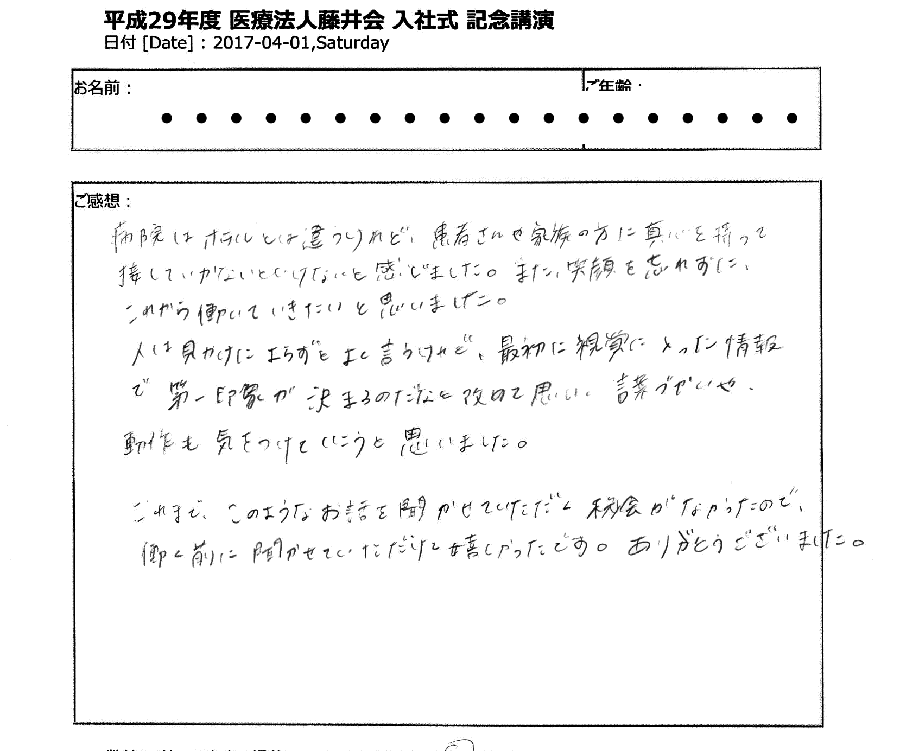 平成29年度 医療法人藤井会 入社式 記念講演
日付 [Date] : 2017-04-01,Saturday
お名前：
ご年齢：
ご感想：
病院はホテルとは違うけれど、患者さんや家族の方に真心を持って
接していかないといけないと感じました。また、笑顔を忘れずに、
これから働いていきたいと思いました。
人は見かけによらずとよく言うけれど、最初に視覚に入った情報
で第一印象が決まるのだなと改めて思い、言葉づかいや、
動作も気をつけていこうと思いました。
これまで、このようなお話を聞かせていただく機会がなかったので、
働く前に聞かせていただけて嬉しかったです。ありがとうございました。